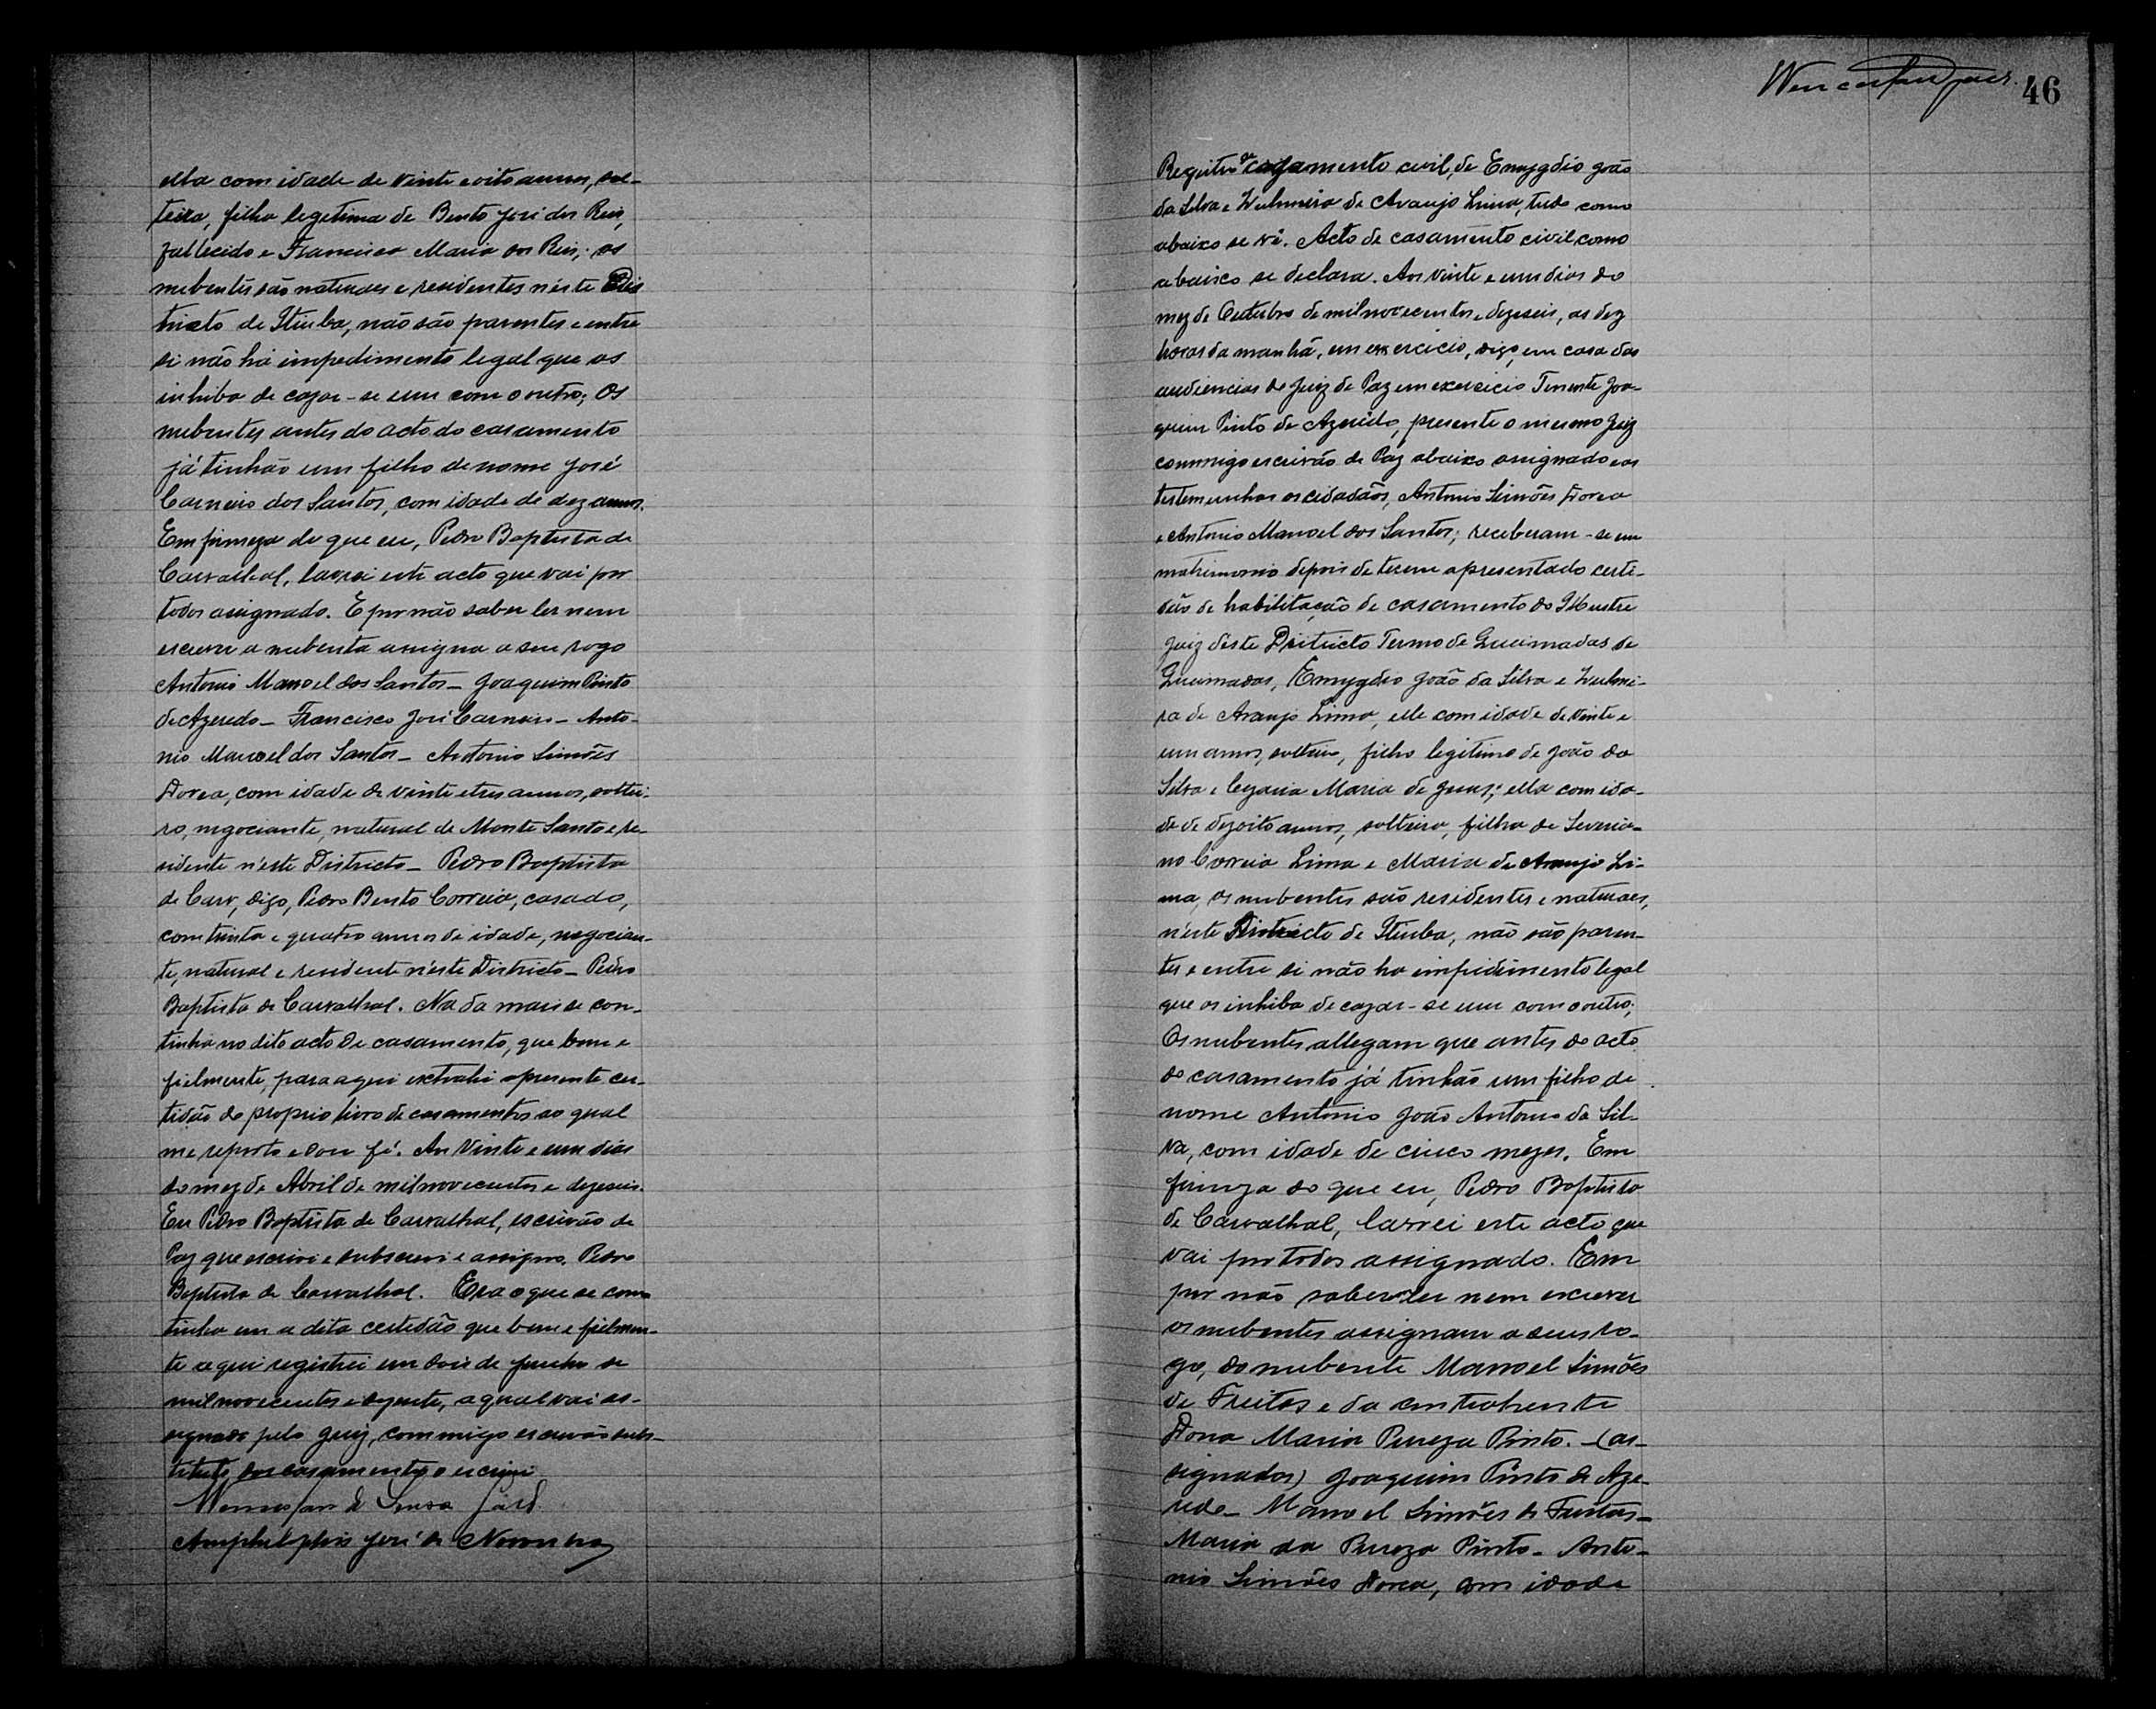 ella com idade de vinte e oito annos, sol-
teira, filha legitima de Bento José dos Reis,
fallecido e Francisca Maria dos Reis; os
nubentes são naturaes e residentes néste Dis
tricto de Itiuba, não são parentes e entre
si não há impedimento legal que os
inhiba de cazar-se um com o outro; Os
nubentes antes do acto do casamento
já tinhão um filho de nome José
Carneiro dos Santos, com idade de dez annos.
Em firmeza do que eu, Pedro Baptista de
Carvalhal, lavrei este acto que vai por
todos assignado. E por não saber ler nem
escrever a nubenta assigna a seu rogo
Antonio Manoel dos Santos - Joaquim Pinto
de Azeredo - Francisco José Carneiro - Anto-
nio Manoel dos Santos - Antonio Simões
Dorea, com idade de vinte e tres annos, soltei-
ro, negociante, natural de Monte Santo e re-
sidente n'este Districto - Pedro Baptista
de Carv, digo, Pedro Bento Correia, casado,
com trinta e quatro annos de idade, negocian-
te, natural e residente n'este Districto - Pedro
Baptista de Carvalhal. Nada mais se con-
tinha no dito acto de casamento, que bem e
fielmente, para aqui extrahi apresente cer-
tidão do proprio livro de casamentos ao qual
me reporto e dou fé. Aos vinte e um dias
do mez de Abril de mil novecentos e dezeseis.
Eu Pedro Baptista de Carvalhal, escrivão de
Paz que escrivi e subscrevi e assigno. Pedro
Baptista de Carvalhal. Era o que se con
tinha em a dita certidão que bem e fielmen-
te aqui registrei em dois de Junho de
mil novecentos e dezesete, a qual vai as-
signado pelo Juiz, commigo escrivão subs-
tituto dos casamentos o escrivi
de Souza
José de Noronha
46
Registro de casamento civil, de Emygdio João
da Silva e Zulmira de Araujo Lima, tudo como
abaixo se vê. Acto de casamento civil como
abaixo se declara. Aos vinte e um dias do
mez de Outubro de mil novecentos e dezeseis, as dez
horas da manhã, em exercicio, digo, em casa das
audiencias do Juiz de Paz em exercicio Tenente Joa-
quim Pinto de Azerêdo, presente o mesmo Juiz
commigo escrivão de Paz abaixo assignado e as
testemunhas os cidadãos, Antonio Simões Dorea
e Antonio Manoel dos Santos; receberam-se em
matrimonio depois de terem apresentado certi-
dão de habilitação de casamento do Illustre
Juiz déste Districto Termo de Queimadas de
Queimadas, Emygdio João da Silva e Zulmi-
ra de Araujo Lima, elle com idade de vinte e
um annos, solteiro, filho legitimo de João da
Silva e Cezaria Maria de Jesus; ella com ida-
de de dezoito annos, solteira, filha de Severia-
no Correia Lima e Maria de Araujo Li-
ma, os nubentes são residentes e naturaes,
n'este Districto de Itiuba, não são paren-
tes e entre si não ha impedimento legal
que os inhiba de cazar-se um com outro;
Os nubentes allegam que antes do acto
do casamento já tinhão um filho de
nome Antonio João Antonio da Sil-
va, com idade de cinco mezes. Em
firmeza do que eu, Pedro Baptista
de Carvalhal, lavrei este acto que
vai por todos assignado. Em
por não saber ler nem escrever
os nubentes assignam a seus ro-
go, do nubente Manoel Simões
de Freitas e da contrahente
Dona Maria Pureza Pinto. - (as-
signados) Joaquim Pinto de Aze-
redo - Manoel Simões de Freitas -
Maria da Pureza Pinto - Anto-
nio Simões Dorea, com idade